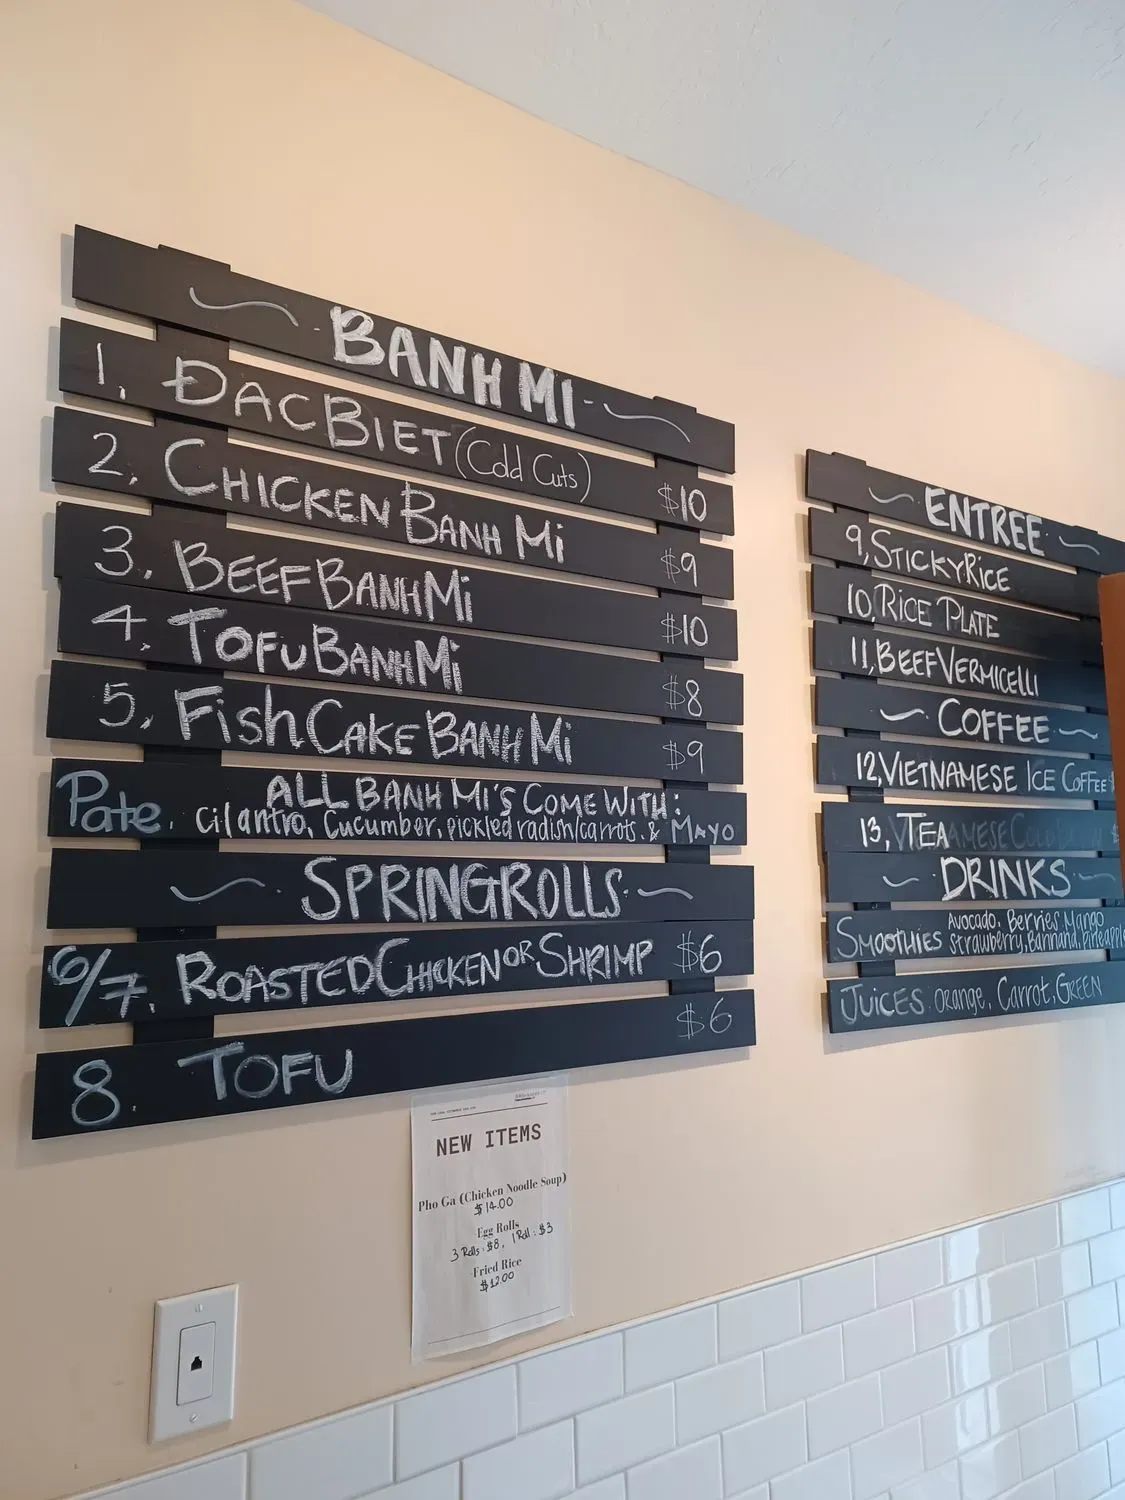 BANH MI
1. ĐAC BIET (Cold Cuts) $10
2. CHICKEN BANH Mi $9
3. BEEF BANH Mi $10
4. TOFU BANH Mi $8
5. Fish CAKE BANH Mi $9
ALL BANH MI'S COME WITH:
Pate, cilantro, Cucumber, pickled radish/carrots. & MAYO
SPRINGROLLS
6/7. ROASTED CHICKEN OR SHRIMP $6
8. TOFU $6
NEW ITEMS
Pho Ga (Chicken Noodle Soup)
$14.00
Egg Rolls
3 Rolls: $8, 1 Roll: $3
Fried Rice
$12.00
ENTREE
9, STICKY RICE
10, RICE PLATE
11, BEEF VERMICELLI
COFFEE
12, VIETNAMESE ICE COFFEE
13, TEA
DRINKS
SMOOTHIES Avocado, Berries, Mango
Strawberry, Bannana, pineapple
JUICES: Orange, Carrot, GREEN